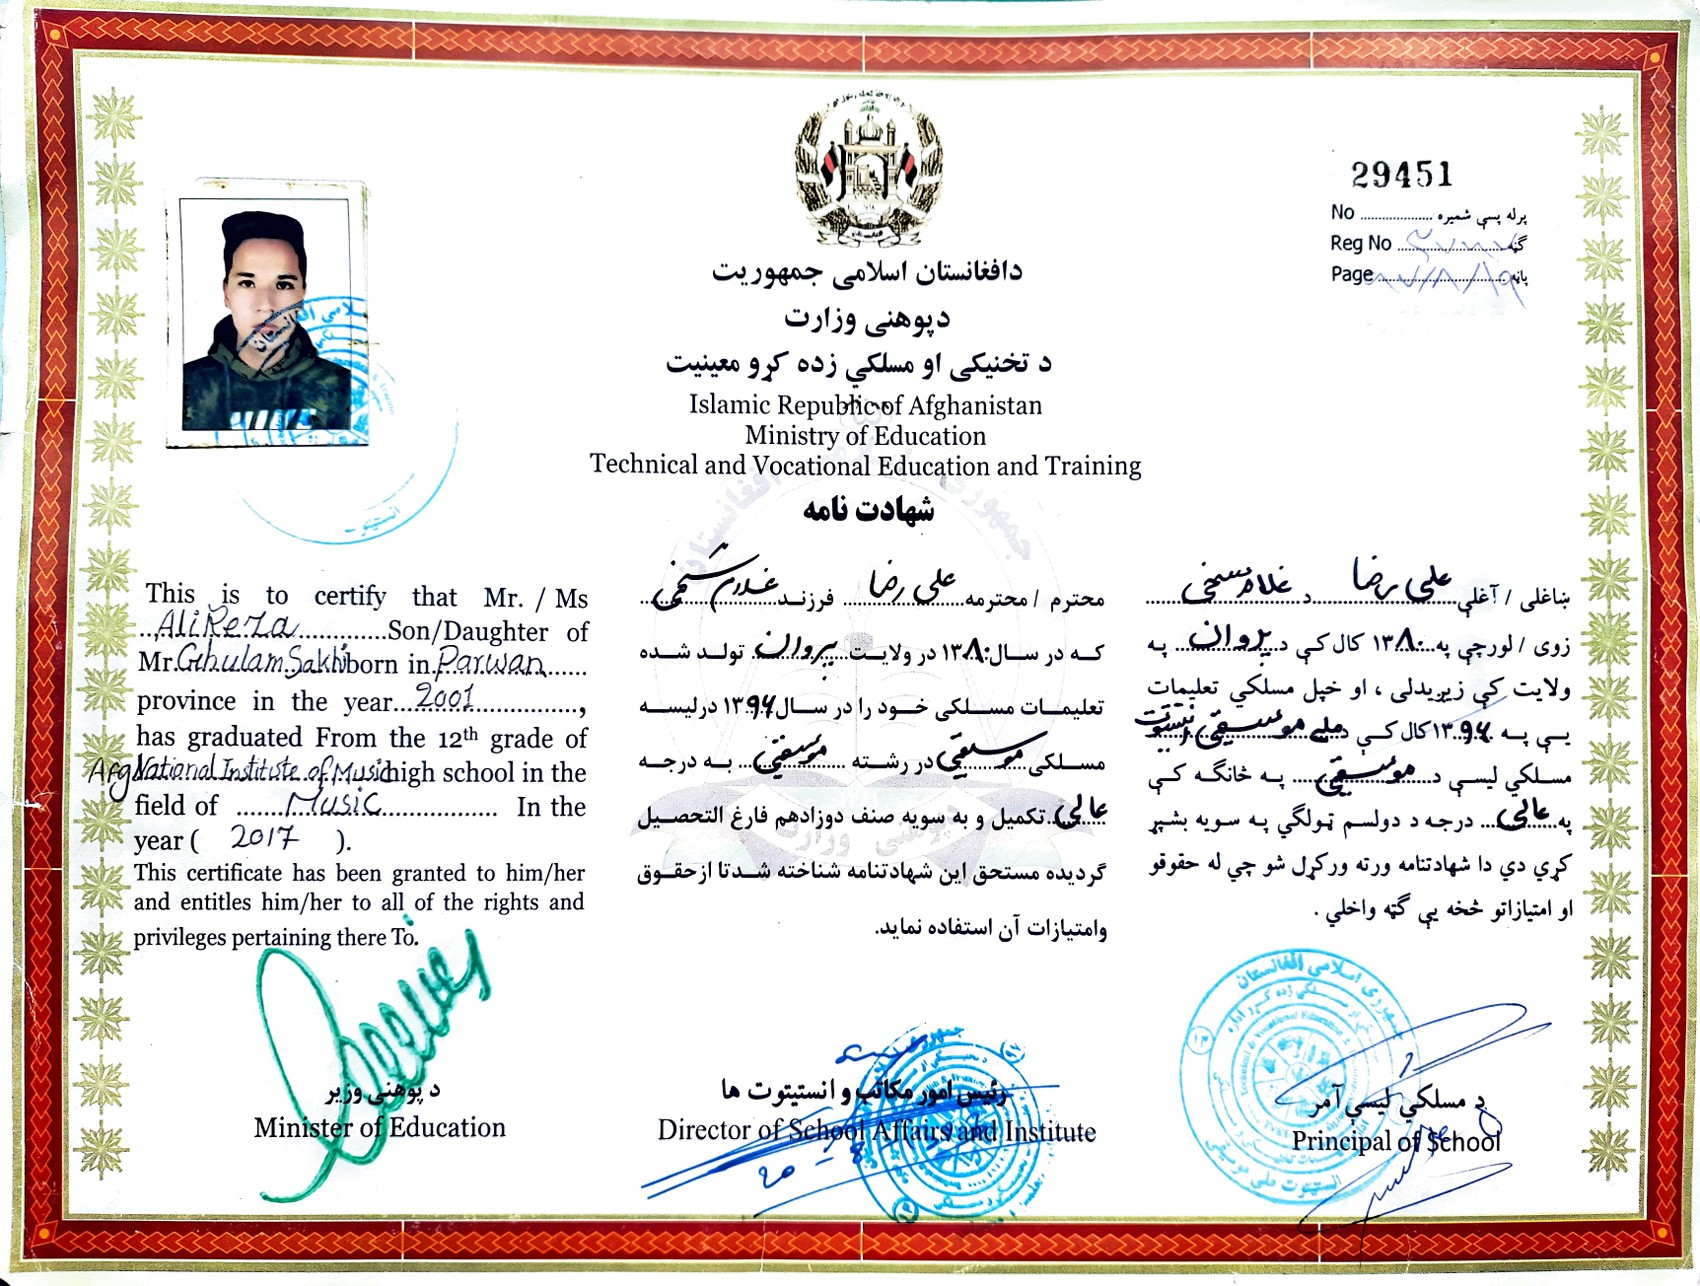 29451
No .................... پرله پسې شمیره
Reg No .................... گڼه
Page .................... پاڼه
دافغانستان اسلامی جمهوریت
دپوهنی وزارت
د تخنیکی او مسلکي زده کړو معینیت
Islamic Republic of Afghanistan
Ministry of Education
Technical and Vocational Education and Training
شهادت نامه
This is to certify that Mr. / Ms
AliReza Son/Daughter of
Mr. Ghulam Sakhi born in Parwan
province in the year 2001,
has graduated From the 12th grade of
Afg National Institute of Music high school in the
field of Music In the
year ( 2017 ).
This certificate has been granted to him/her
and entitles him/her to all of the rights and
privileges pertaining there To.
محترم / محترمه علی رضا فرزند غلام سخی
که در سال ۱۳۸۰ در ولایت پروان تولد شده
تعلیمات مسلکی خود را در سال ۱۳۹۶ درلیسه
مسلکی موسیقی در رشته موسیقی به درجه
عالی تکمیل و به سویه صنف دوزادهم فارغ التحصیل
گردیده مستحق این شهادتنامه شناخته شدتا ازحقوق
وامتیازات آن استفاده نماید.
ښاغلی / آغلې علی رضا د غلام سخی
زوی / لورچې په ۱۳۸۰ کال کې د پروان په
ولایت کې زېږیدلی ، او خپل مسلکي تعلیمات
یې په ۱۳۹۶ کال کې د ملی موسیقی انستیتوت
مسلکي لیسې د موسیقی په څانگه کې
په عالی درجه د دولسم ټولگي په سویه بشپړ
کړي دي دا شهادتنامه ورته ورکړل شو چې له حقوقو
او امتیازاتو څخه یې گټه واخلي .
د پوهنی وزیر
Minister of Education
رئیس امور مکاتب و انستیتوت ها
Director of School Affairs and Institute
د مسلکي لیسې آمر
Principal of School